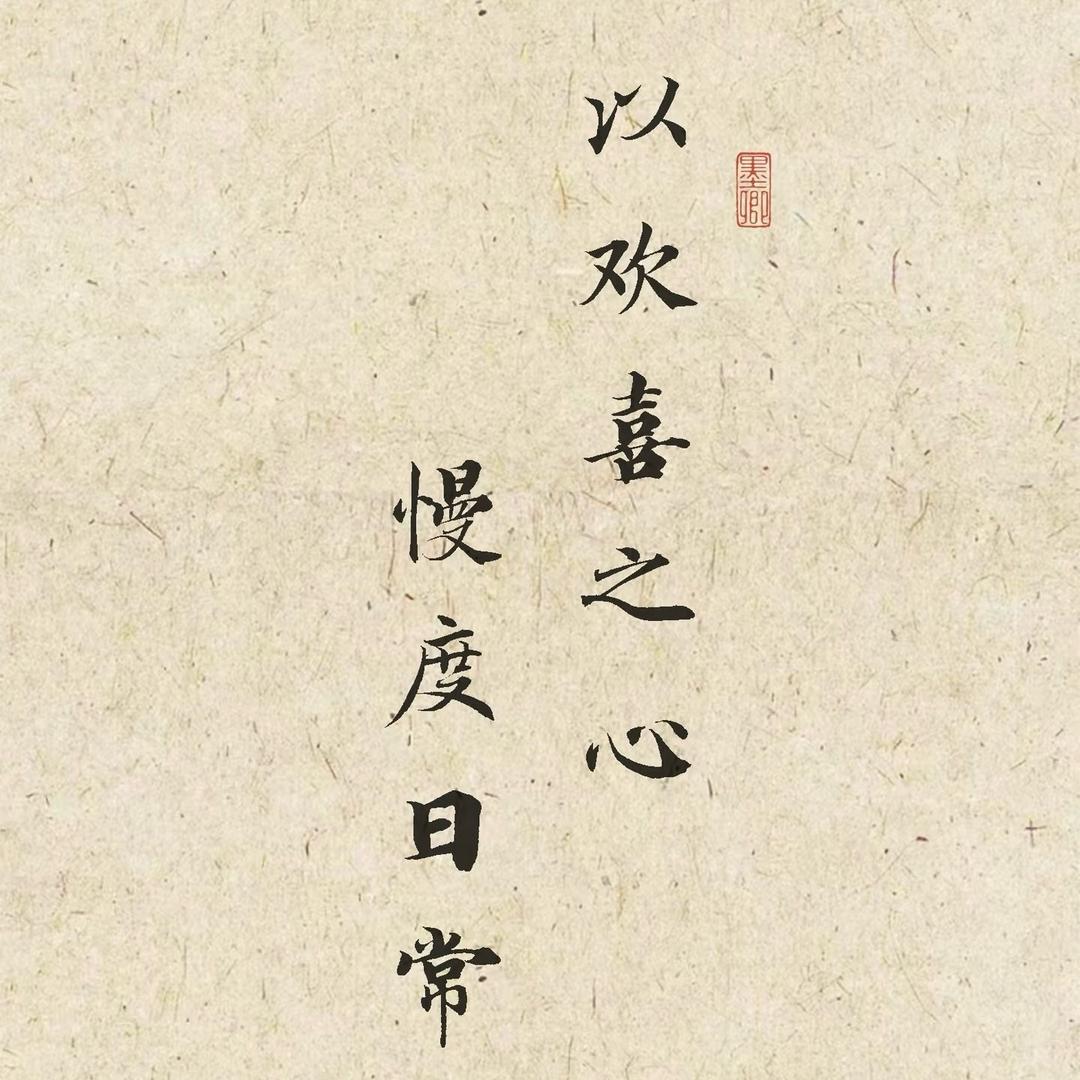 以欢喜之心
慢度日常
墨卿